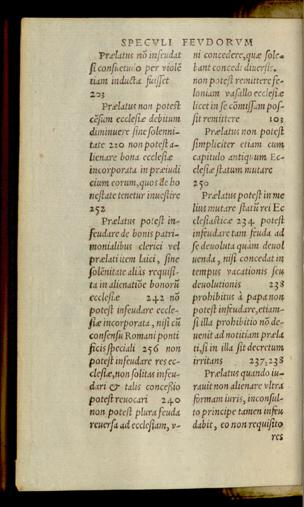 SPECULI FEVDORVM
Prælatus nō infeudat
si consuetudo per violē
tiam inducta fuisset
203
Prælatus non potest
cēsum ecclesiæ debitum
diminuere sine solenni-
tate 220 non potest a-
lienare bona ecclesiæ
incorporata in præiudi
cium eorum, quos de ho
nestate tenetur inuestire
252
Prælatus potest in-
feudare de bonis patri-
monialibus clerici vel
prælati item laici, sine
solēnitate aliàs requisi-
ta in alienatiōe bonorū
ecclesiæ 242 nō
potest infeudare eccle-
siæ incorporata, nisi cū
consensu Romani ponti
ficis speciali 256 non
potest infeudare res ec-
clesiæ, non solitas infeu-
dari & talis concessio
potest reuocari 240
non potest plura feuda
reuersa ad ecclesiam, v-
ni concedere, quæ sole-
bant concedi diuersis.
non potest remittere fe-
loniam vasallo ecclesiæ
licet in se cōmissam pos-
sit remittere 103
Prælatus non potest
simpliciter etiam cum
capitulo antiquum Ec-
clesiæ statum mutare
250
Prælatus potest in me
lius mutare statū rei Ec
clesiasticæ 234 potest
infeudare tam feuda ad
se deuoluta quàm deuol
uenda, nisi concedat in
tempus vacationis seu
deuolutionis 238
prohibitus à papa non
potest infeudare, etiam-
si illa prohibitio nō de-
uenit ad notitiam præla
ti, si in illa sit decretum
irritans 237,238
Prælatus quando iu-
rauit non alienare vltra
formam iuris, inconsul-
to principe tamen infeu
dabit, eo non requisito
res